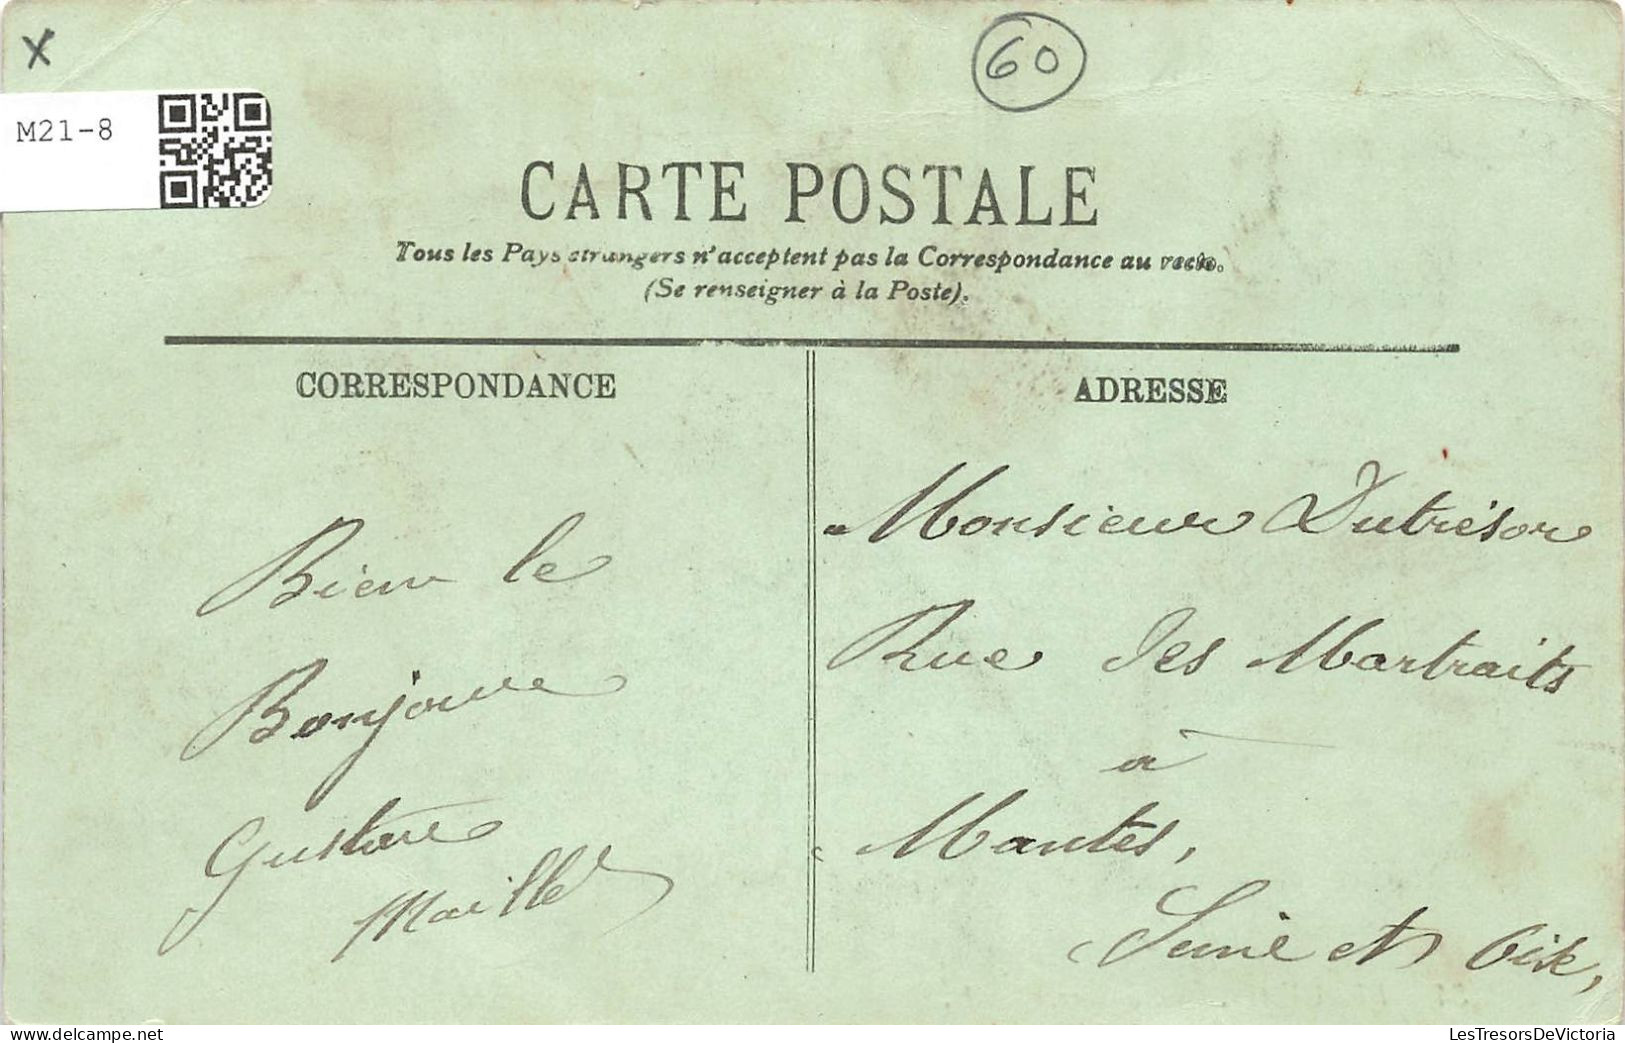 X
60
M21-8
CARTE POSTALE
Tous les Pays étrangers n'acceptent pas la Correspondance au recto.
(Se renseigner à la Poste).
CORRESPONDANCE
ADRESSE
Bien le
Bonjour
Gustave
Maillet
Monsieur Dutrésor
Rue des Martraits
à
Mantes,
Seine et Oise,
M21-8 CARTE POSTALE
LesTresorsDeVictoria